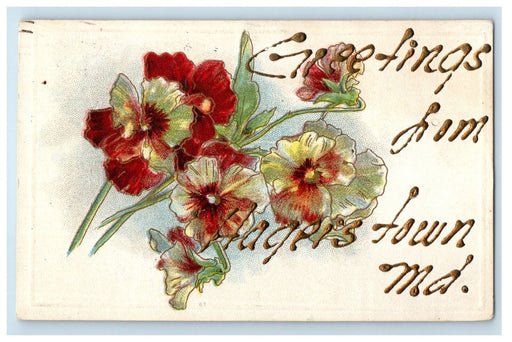 Greetings
from
Hagers town
Md.